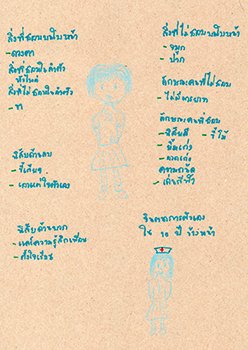 สิ่งที่ชอบบนใบหน้า
- ดวงตา
สิ่งที่ชอบในลำตัว
หัวไหล่
สิ่งที่ไม่ชอบในลำตัว
- ขา
นิสัยด้านลบ
- ขี้เกียจ
- เอาแต่ใจตัวเอง
นิสัยด้านบวก
- แคร์ความรู้สึกเพื่อน
- ตั้งใจเรียน
สิ่งที่ไม่ชอบบนใบหน้า
- จมูก
- ปาก
ลักษณะคนที่ไม่ชอบ
- ไม่มีมารยาท
ลักษณะคนที่ชอบ
- นิสัยดี
- ยิ้มเก่ง
ความถนัด
จินตนาการตัวเอง
ใน 10 ปี ข้างหน้า